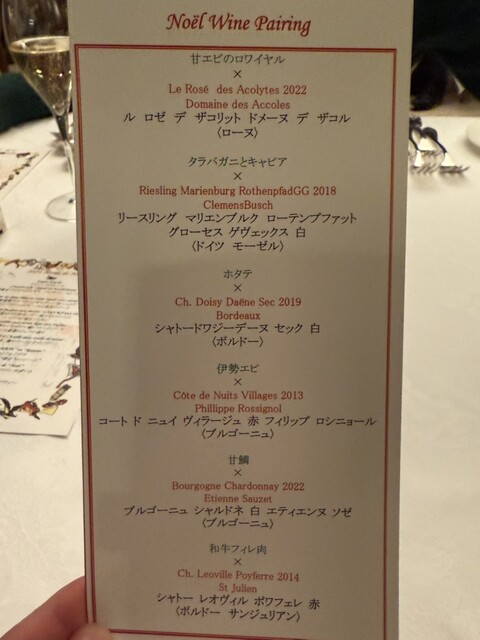 Noël Wine Pairing
甘エビのロワイヤル
×
Le Rosé des Acolytes 2022
Domaine des Accoles
ル ロゼ デ ザコリット ドメーヌ デ ザコル
〈ローヌ〉
タラバガニとキャビア
×
Riesling Marienburg RothenpfadGG 2018
ClemensBusch
リースリング マリエンブルク ローテンプファット
グローセス ゲヴェックス 白
〈ドイツ モーゼル〉
ホタテ
×
Ch. Doisy Daëne Sec 2019
Bordeaux
シャトードワジーデーヌ セック 白
〈ボルドー〉
伊勢エビ
×
Côte de Nuits Villages 2013
Phillippe Rossignol
コート ド ニュイ ヴィラージュ 赤 フィリップ ロシニョール
〈ブルゴーニュ〉
甘鯛
×
Bourgogne Chardonnay 2022
Etienne Sauzet
ブルゴーニュ シャルドネ 白 エティエンヌ ソゼ
〈ブルゴーニュ〉
和牛フィレ肉
×
Ch. Leoville Poyferre 2014
St Julien
シャトー レオヴィル ポワフェレ 赤
〈ボルドー サンジュリアン〉